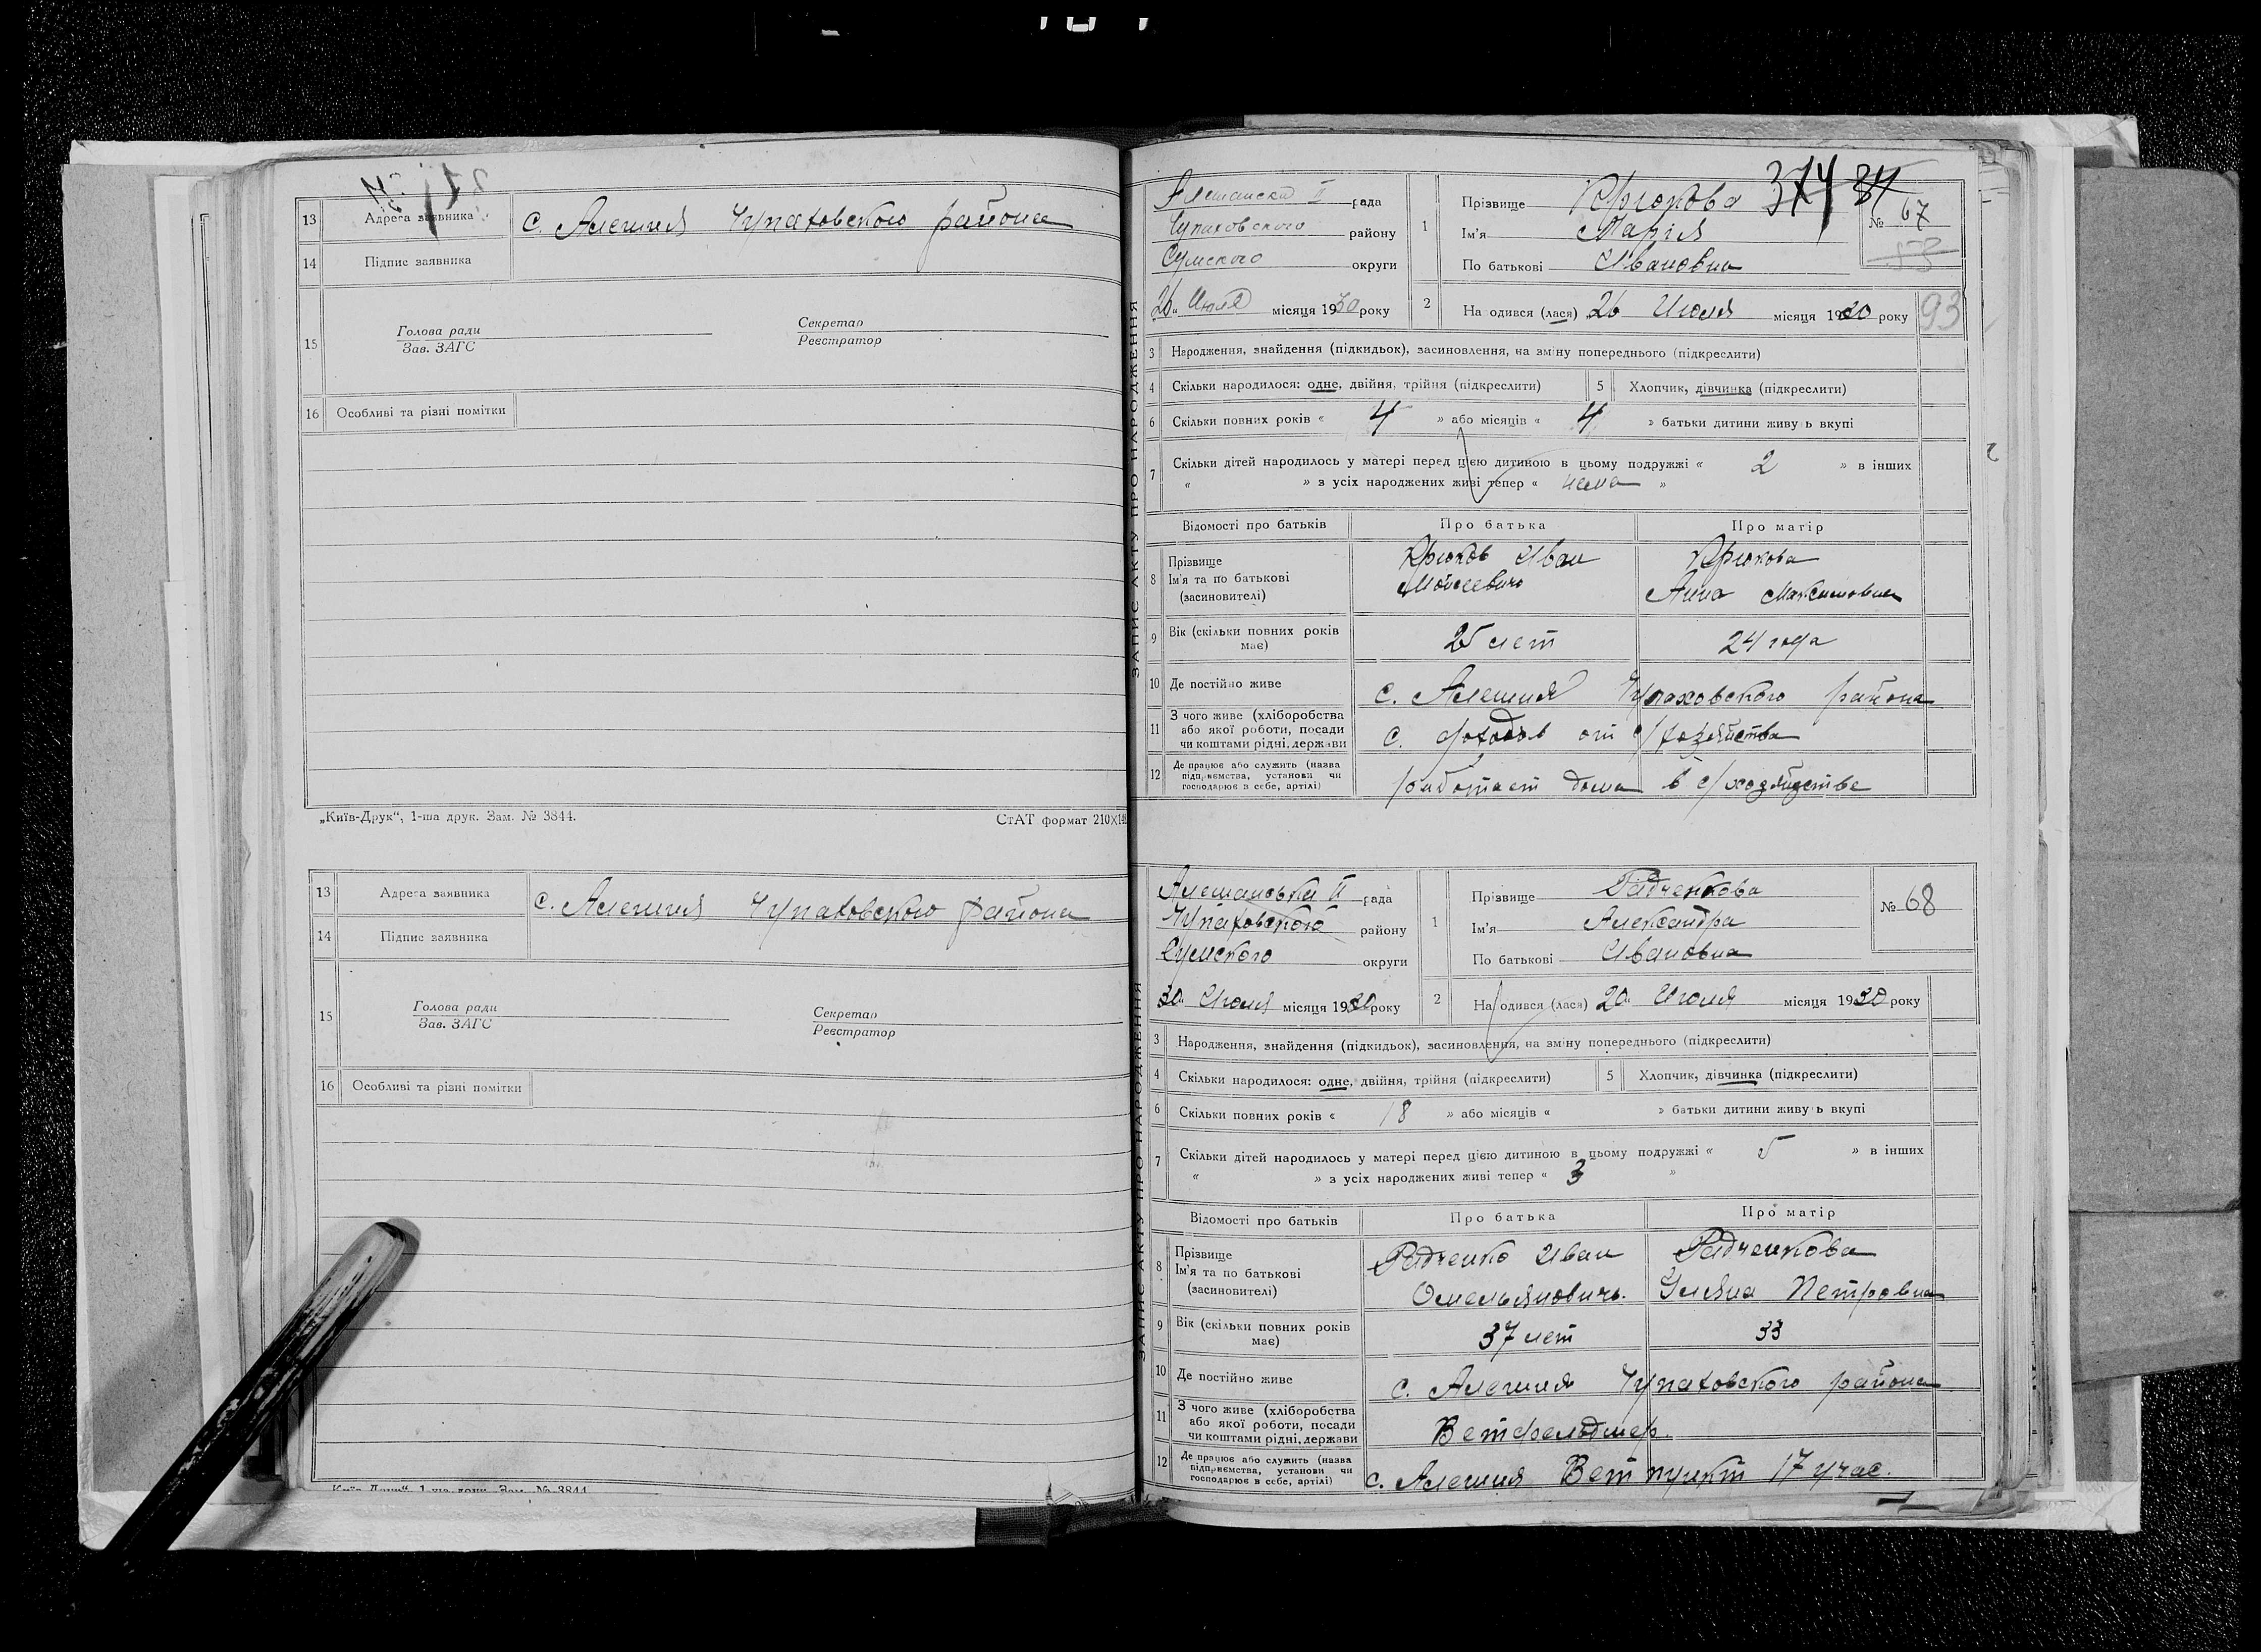 13 Адреса заявника с. Алешня Чупаховского района
14 Підпис заявника
15 Голова ради Секретар
Зав. ЗАГС Реєстратор
16 Особливі та різні помітки
„Київ-Друк“, 1-ша друк. Зам. № 3844. СтАТ формат 210×148
13 Адреса заявника с. Алешня Чупаховского района
14 Підпис заявника
15 Голова ради Секретар
Зав. ЗАГС Реєстратор
16 Особливі та різні помітки
„Київ-Друк“, 1-ша друк. Зам. № 3844
ЗАПИС АКТУ ПРО НАРОДЖЕННЯ
374 84
Алешанска II рада 1 Прізвище Крюкова № 67
Чупаховского району Ім'я Марія 53
Сумского округи По батькові Ивановна
26 Июля місяця 1930 року 2 На одився (лася) 26 Июля місяця 1930 року 93
3 Народження, знайдення (підкидьок), засиновлення, на зміну попереднього (підкреслити)
4 Скільки народилося: одне, двійня, трійня (підкреслити) 5 Хлопчик, дівчинка (підкреслити)
6 Скільки повних років « 4 » або місяців « 4 » батьки дитини живуть вкупі
7 Скільки дітей народилось у матері перед цією дитиною в цьому подружжі « 2 » в інших
« » з усіх народжених живі тепер « нема »
Відомості про батьків Про батька Про матір
8 Прізвище Крюков Иван Крюкова
Ім'я та по батькові Мойсеевич Анна Максимовна
(засиновителі)
9 Вік (скільки повних років має) 25 лет 24 года
10 Де постійно живе с. Алешня Чупаховского района
11 З чого живе (хліборобства
або якої роботи, посади
чи коштами рідні, держави с. доходов от с/хозяйства
12 Де працює або служить (назва
підприємства, установи чи
господарює в себе, артілі) работает дома в с/хозяйстве
ЗАПИС АКТУ ПРО НАРОДЖЕННЯ
Алешанська II рада 1 Прізвище Радченкова № 68
Чупаховского району Ім'я Александра
Сумского округи По батькові Ивановна
30 Июля місяця 1930 року 2 На одився (лася) 20 Июля місяця 1930 року
3 Народження, знайдення (підкидьок), засиновлення, на зміну попереднього (підкреслити)
4 Скільки народилося: одне, двійня, трійня (підкреслити) 5 Хлопчик, дівчинка (підкреслити)
6 Скільки повних років « 18 » або місяців « » батьки дитини живуть вкупі
7 Скільки дітей народилось у матері перед цією дитиною в цьому подружжі « 5 » в інших
« » з усіх народжених живі тепер « 3 »
Відомості про батьків Про батька Про матір
8 Прізвище Радченко Иван Радченкова
Ім'я та по батькові Омельянович. Уляна Петровна
(засиновителі)
9 Вік (скільки повних років має) 37 лет 33
10 Де постійно живе с. Алешня Чупаховского района
11 З чого живе (хліборобства
або якої роботи, посади
чи коштами рідні, держави Ветфельдшер.
12 Де працює або служить (назва
підприємства, установи чи
господарює в себе, артілі) с. Алешня Ветпункт 17 учас.